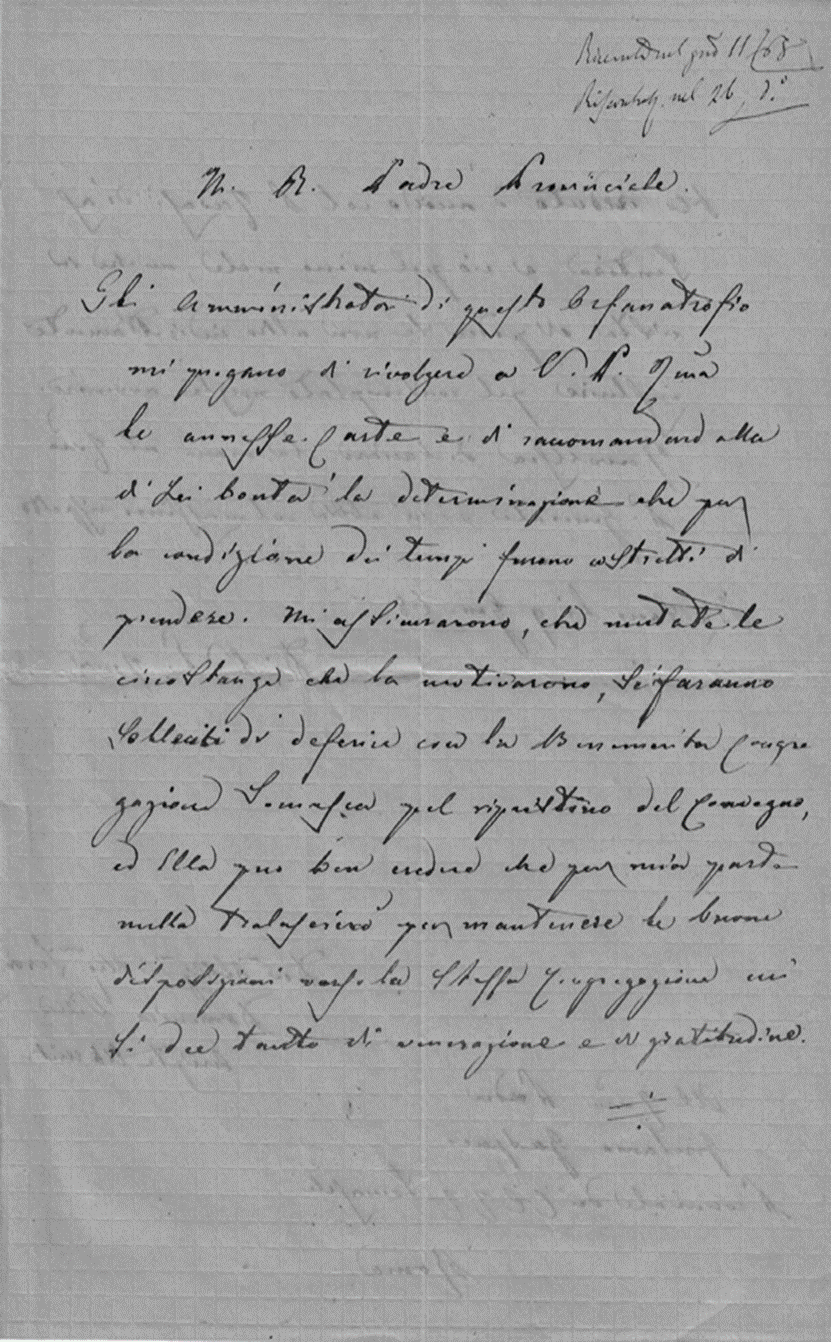 nel 11/65
nel 26 d.°
M. R. Padre Provinciale.
Gli Amministratori di questo Orfanotrofio
mi pregano di rivolgere a V. P. R.ma
le annesse carte e di raccomandare alla
di Lei bontà la determinazione che per
la condizione dei tempi furono costretti di
prendere. Mi assicurarono, che mutate le
circostanze che la motivarono, si faranno
solleciti di deferire con la Benemerita Congre
gazione Somasca pel ripristino del Convegno,
ed Ella può ben credere che per mia parte
nulla tralascierò per mantenere le buone
disposizioni verso la stessa Congregazione cui
si dee tanto di venerazione e di gratitudine.